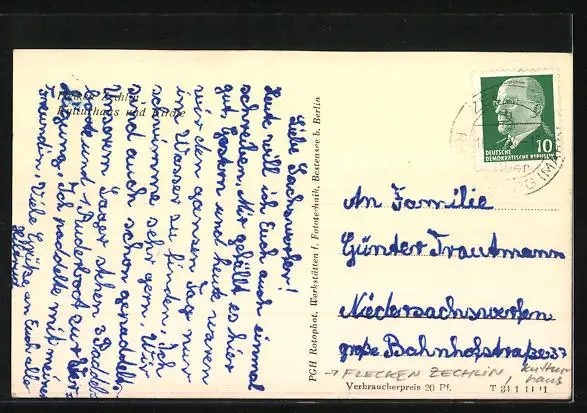 Flecken Zechlin
Kulturhaus und Kirche
Liebe Sachswerfer!
Heut will ich Euch auch einmal
schreiben. Mir gefällt es hier
gut. Gestern und heute waren
wir den ganzen Tag nur
im Wasser zu finden. Ich
schwimme sehr gern. Wir
sind auch schon gepaddelt.
Unserem Lager stehen 3 Paddel-
boote und 1 Ruderboot zur Ver-
fügung. Ich paddelte mit meiner
Freundin. Viele Grüße an Euch alle
PGH Rotophot, Werkstätten f. Fototechnik, Bestensee b. Berlin
10
DEUTSCHE
DEMOKRATISCHE REPUBLIK
An Familie
Günter Trautmann
Niedersachswerfen
große Bahnhofstraße 37
→ FLECKEN ZECHLIN, Kultur-
haus
Verbraucherpreis 20 Pf.